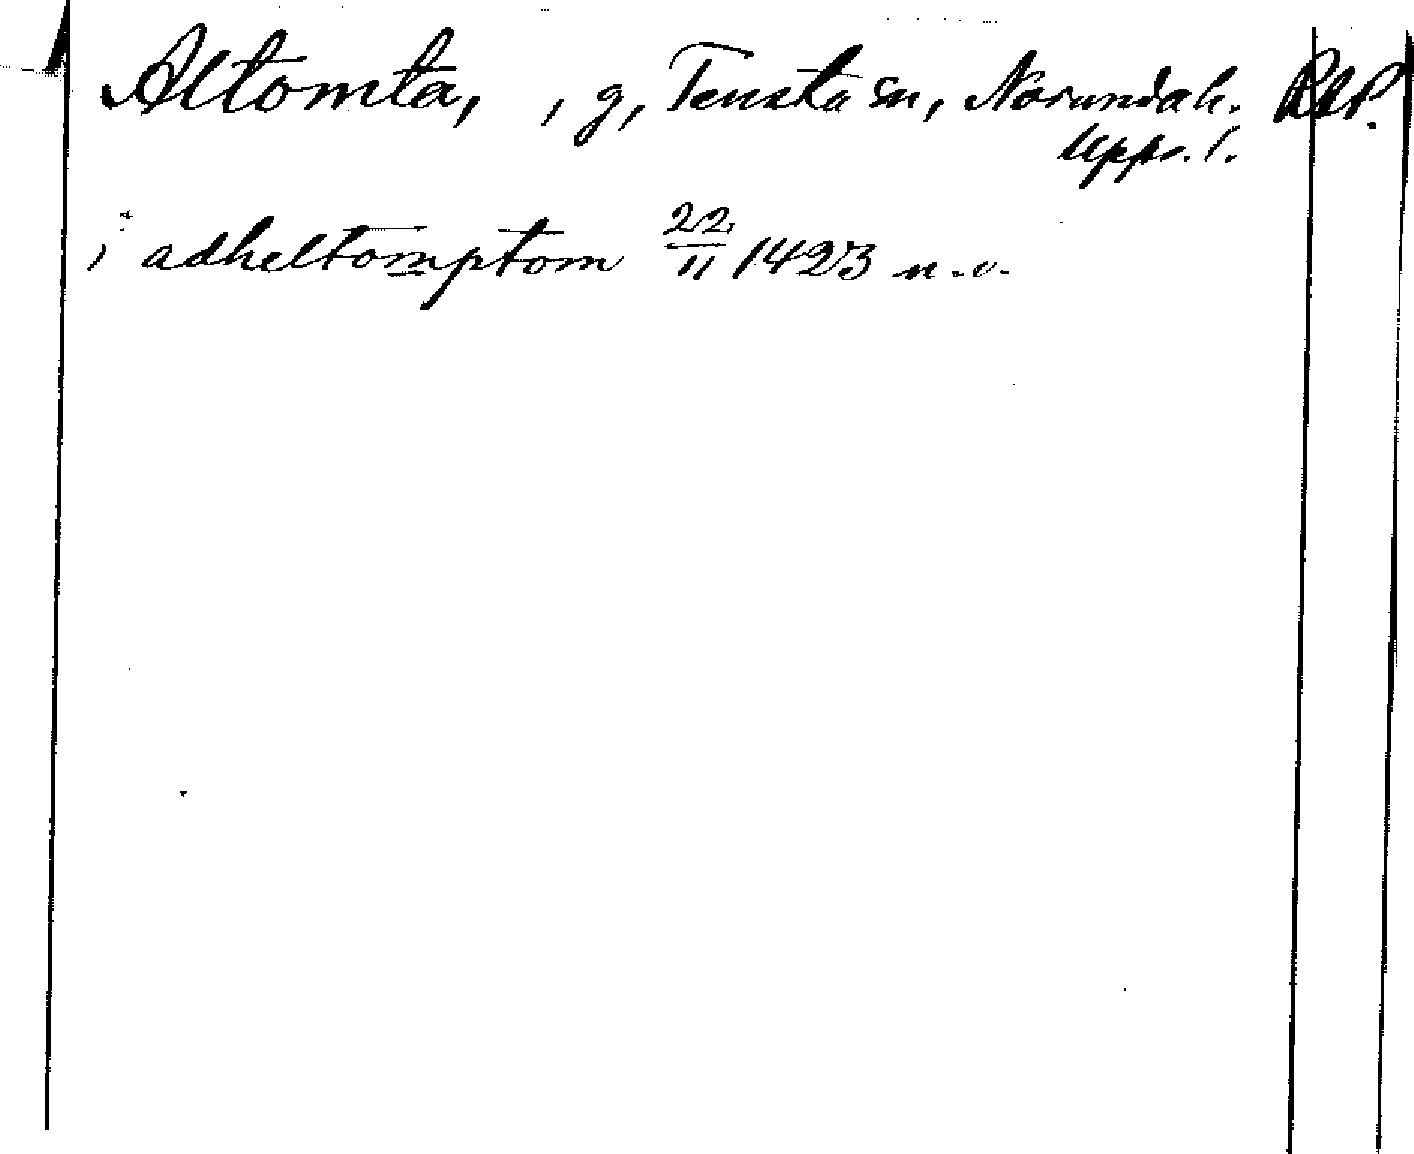 Altomta, , g, Tensta sn, Norunda h. RAP.
Upps. l.
i adheltomptom 22/11 1423 n.v.